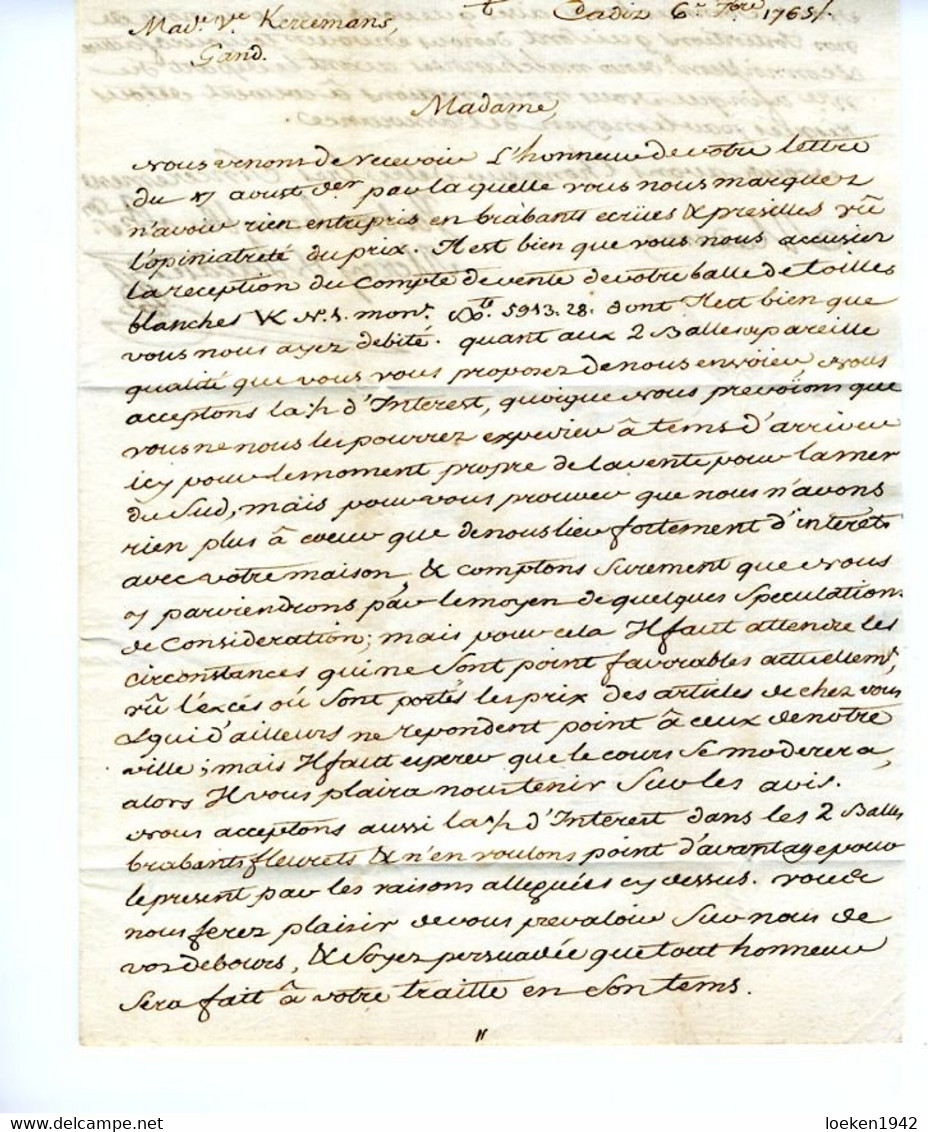 Mad.e V.e Kerremans, Cadiz 6.e 7bre 1765/.
Gand.
Madame,
Nous venons de recevoir L'honneur de votre lettre
du 17 aoust der par laquelle vous nous marquez
n'avoir rien entrepris en brabants ecrües & presilles vû
l'opiniatreté du prix. Il est bien que vous nous accusiez
la reception du Compte de vente de votre balle de toilles
blanches VK N.1. mont. 5913.28. dont Il est bien que
vous nous ayez debité. quant aux 2 Balles de pareille
qualité que vous vous proposez de nous envoier, Nous
acceptons la d'Interest, quoique Nous prevoïons que
vous ne nous les pourrez expedier à tems d'arriver
icy pour le moment propre de la vente pour la mer
du Sud, mais pour vous prouver que nous n'avons
rien plus à coeur que de nous lier fortement d'intérêts
avec votre maison, & comptons Surement que Nous
y parviendrons par le moyen de quelques Speculations
de Consideration; mais pour cela Il faut attendre les
circonstances qui ne Sont point favorables actuellemt,
vû l'excés où Sont portés les prix des articles de chez vous
& qui d'ailleurs ne repondent point à ceux de notre
ville; mais Il faut esperer que le cours Se moderera,
alors Il vous plaira nous tenir Sur les avis.
Nous acceptons aussi la d'Interest dans les 2 Balles
brabants fleurets & n'en voulons point d'avantage pour
le present par les raisons alleguées cy dessus. vous
nous ferez plaisir de vous prevaloir Sur nous de
vos debours, & Soyez persuadée que tout honneur
Sera fait à votre traitte en Son tems.
loeken1942